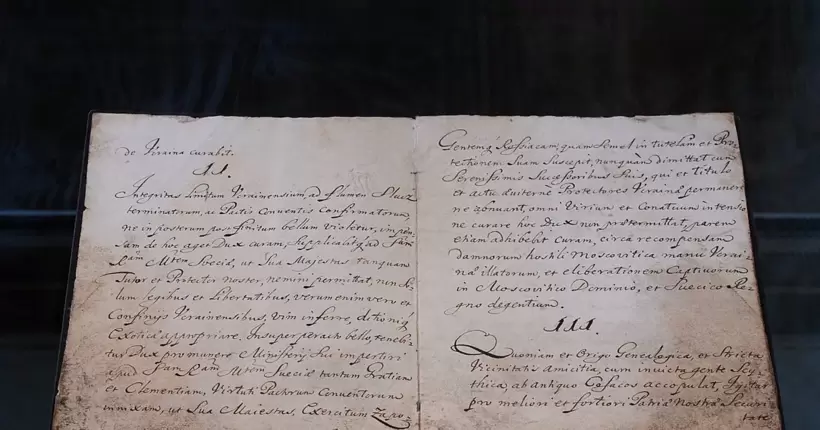 de Vcraina curabit.
II.
Integritas limitum Vcrainensium, ad flumen Slucz
terminatorum, ac Pactis Conventis Confirmatorum,
ne in posterum post finitum bellum violetur, impen
sam de hoc aget Dux curam, supplicabitq ad
Mtem Sveciæ, ut Sua Majestas tanquam
Tutor et Protector noster, nemini permittat, non so
lum legibus et Libertatibus, verum enim vero et
Confinijs Vcrainensibus, vim inferre, ditioniq
Exoticæ appropriare. Insuper peracto bello, tenebi
tur Dux pro munere Ministerij sui impertiri
apud Mtem Sveciæ tantum Gratiam
et Clementiam, Virtuti Pactorum Conventorum
innixam, ut Sua Maiestas, Exercitum Zapo-
Gentemq Rossiacam, quam semel in tutelam et Pro
tectionem Suam Suscepit, nunquam dimittat cum
Serenissimis Successoribus Suis, qui et titulo
et actu æviterne Protectores Vcrainæ permanere
ne abnuant, omni Virium et Conatuum intensio
ne curare hoc Dux non prætermittat, parem
etiam adhibebit Curam, circa recompensam
damnorum hostili Moscovitica manu Vcrai-
næ illatorum, et eliberationem Captivorum
in Moscovitico Dominio, et Suecico Re
gno degentium.
III.
Quoniam et Origo Genealogica, et Stricta
Vicinitatis amicitia, cum invicta gente Scy-
thica, ab antiquo Cosacos accopulat,
pro meliori et fortiori Patriæ Nostræ Securi
tate